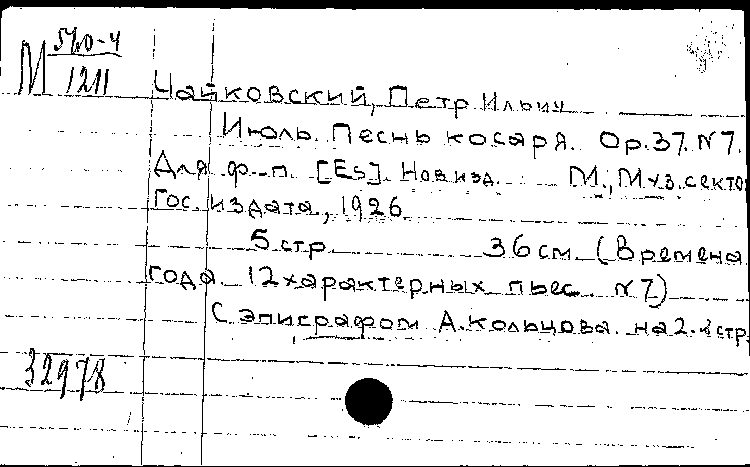 М 540-4
1211
Чайковский, Петр Ильич
Июль. Песнь косаря. Op.37. №7.
Для ф.-п. [Es]. Нов. изд. М., Муз. сектор
Гос. издата, 1926.
5 стр. 36 см. (Времена
года. 12 характерных пьес. №7.)
С эпиграфом А. Кольцова. на 2. стр.
32978